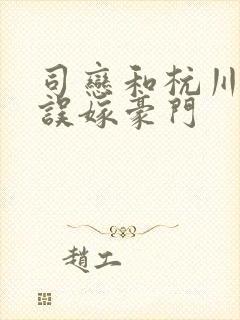 司戀和杭川
誤嫁豪門
趙工